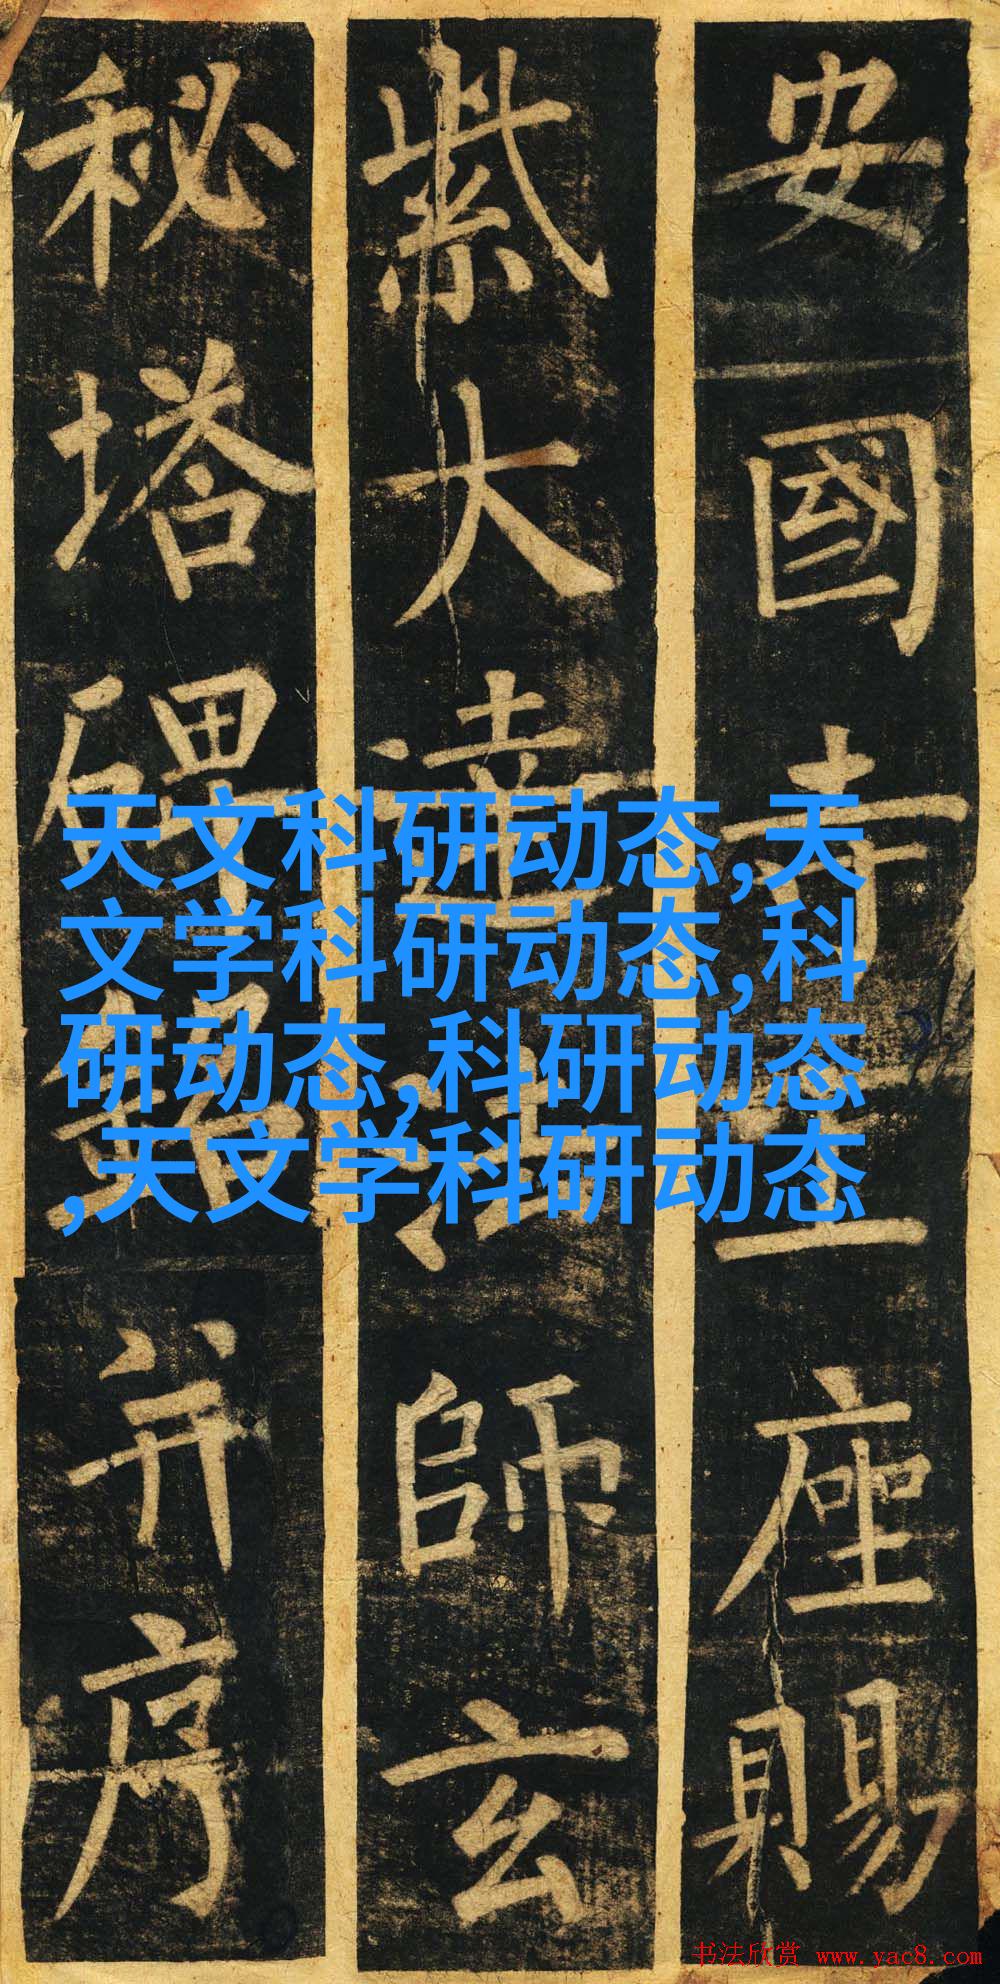 安國寺上座賜
紫大達法師玄
秘塔碑銘并序
天文科研动态,天
文学科研动态,科
研动态,科研动态
,天文学科研动态
书法欣赏 www.yac8.com